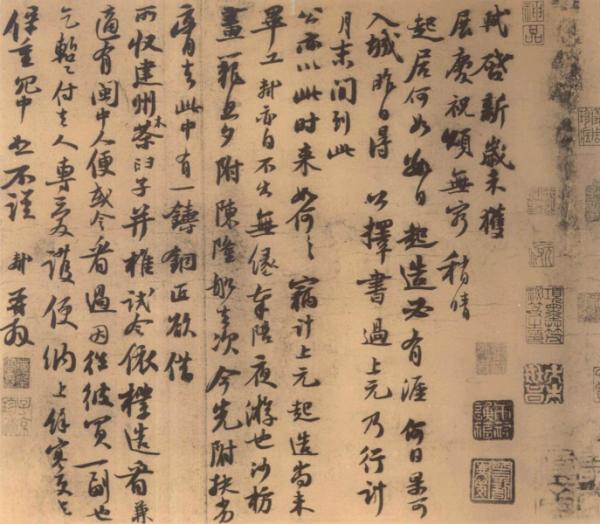 軾啓新歲未獲
展慶祝頌無窮稍晴
起居何如數日起造必有涯何日果可
入城昨日得公擇書過上元乃行計
月末間到此
公亦以此時來如何〻竊計上元起造尚未
畢工軾亦自不出無緣奉陪夜遊也沙枋
畫籠旦夕附陳隆船去次今先附扶劣
膏去此中有一鑄銅匠欲借
所收建州木茶臼子并椎試令依樣造看兼
適有閩中人便或令看過因往彼買一副也
乞暫付去人專愛護便納上餘寒更乞
保重冗中恕不謹軾再拜